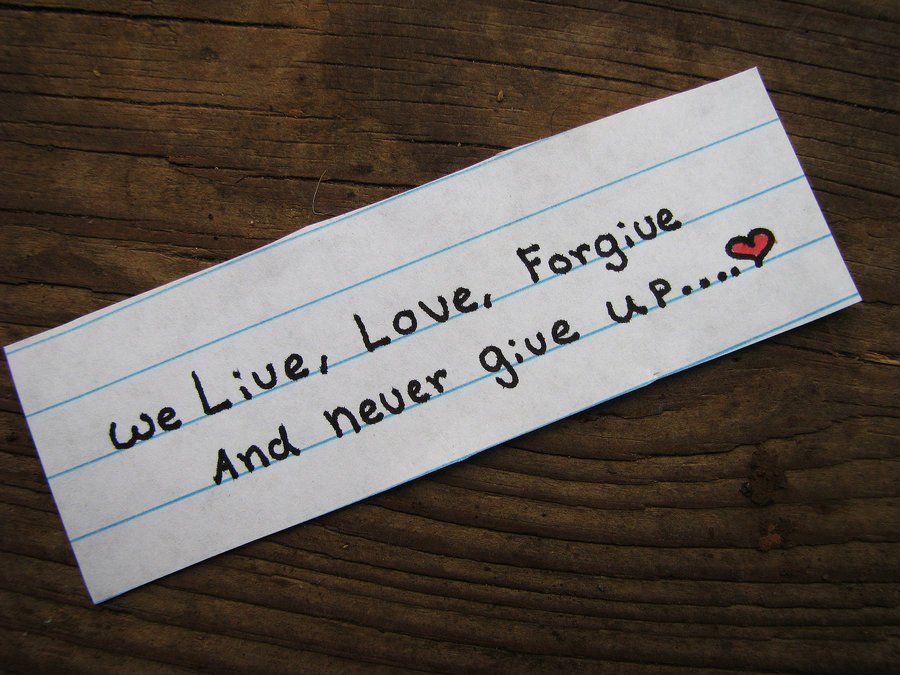 we Live, Love, Forgive
And never give up....